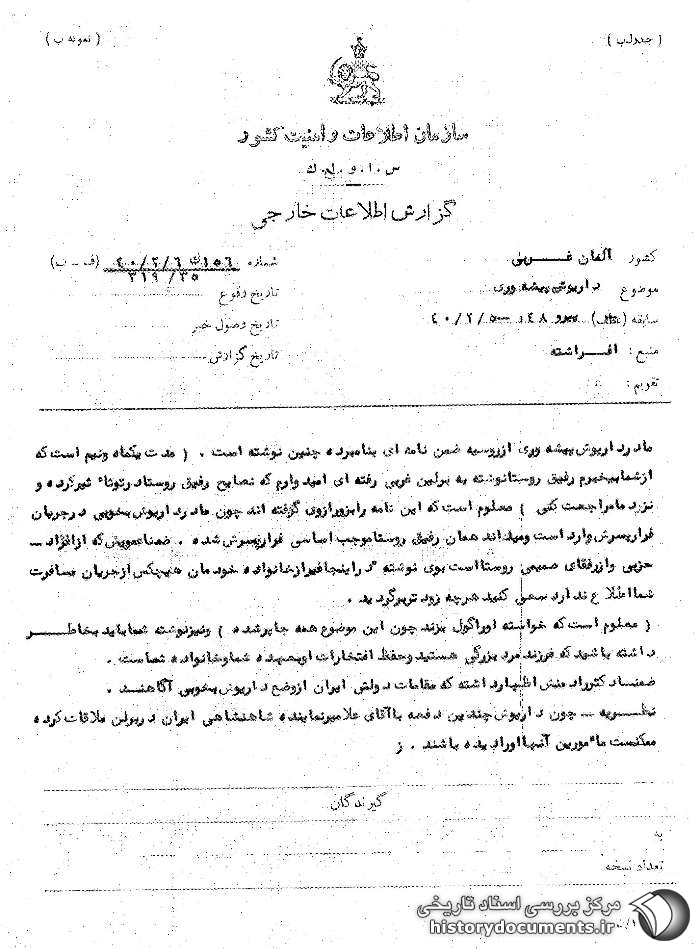 ( جدول ب )
( نمونه ب )
سازمان اطلاعات و امنیت کشور
س . ا . و . ا . ك
گزارش اطلاعات خارجی
کشور آلمان غــربی
شماره (ف - ب)
۳۱۹/۳۵
موضوع داریوش پیشه وری
تاریخ وقوع
سابقه پیرو ۴۸
تاریخ وصول خبر
منبع : افــراشته
تاریخ گزارش
تقویم :
مادر داریوش پیشه وری از روسیه ضمن نامه ای بنامبرده چنین نوشته است . ( مدت یکماه ونیم است که
از شما بیخبرم رفیق روستا نوشته به برلین غربی رفته ای امیدوارم که نصایح رفیق روستا در تو تاثیر کرده و
نزد ما مراجعت کنی ) معلوم است که این نامه را بزور از وی گرفته اند چون مادر داریوش بخوبی در جریان
فرار پسرش وارد است و میداند همان رفیق روستا موجب اساسی فرار پسرش شده . ضمنا عمویش که از افراد -
حزبی و از رفقای صمیمی روستا است بوی نوشته " در اینجا غیر از خانواده خودمان هیچکس از جریان مسافرت
شما اطلاع ندارد سعی کنید هرچه زودتر برگردید .
( معلوم است که خواسته او را گول بزند چون این موضوع همه جا پر شده ) و نیز نوشته شما باید بخاطــر
داشته باشید که فرزند مرد بزرگی هستید و حفظ افتخارات او بعهده شما و خانواده شماست .
ضمنا دکتر رادمنش اظهار داشته که مقامات دولتی ایران از وضع داریوش بخوبی آگاهند .
نظــریه - چون داریوش چندین دفعه با آقای علامیر نماینده شاهنشاهی ایران در برلن ملاقات کرده
ممکنست مأمورین آنها او را دیده باشند . ز
گیرندگان
به
تعداد نسخه
مرکز بررسی اسناد تاریخی
historydocuments.ir